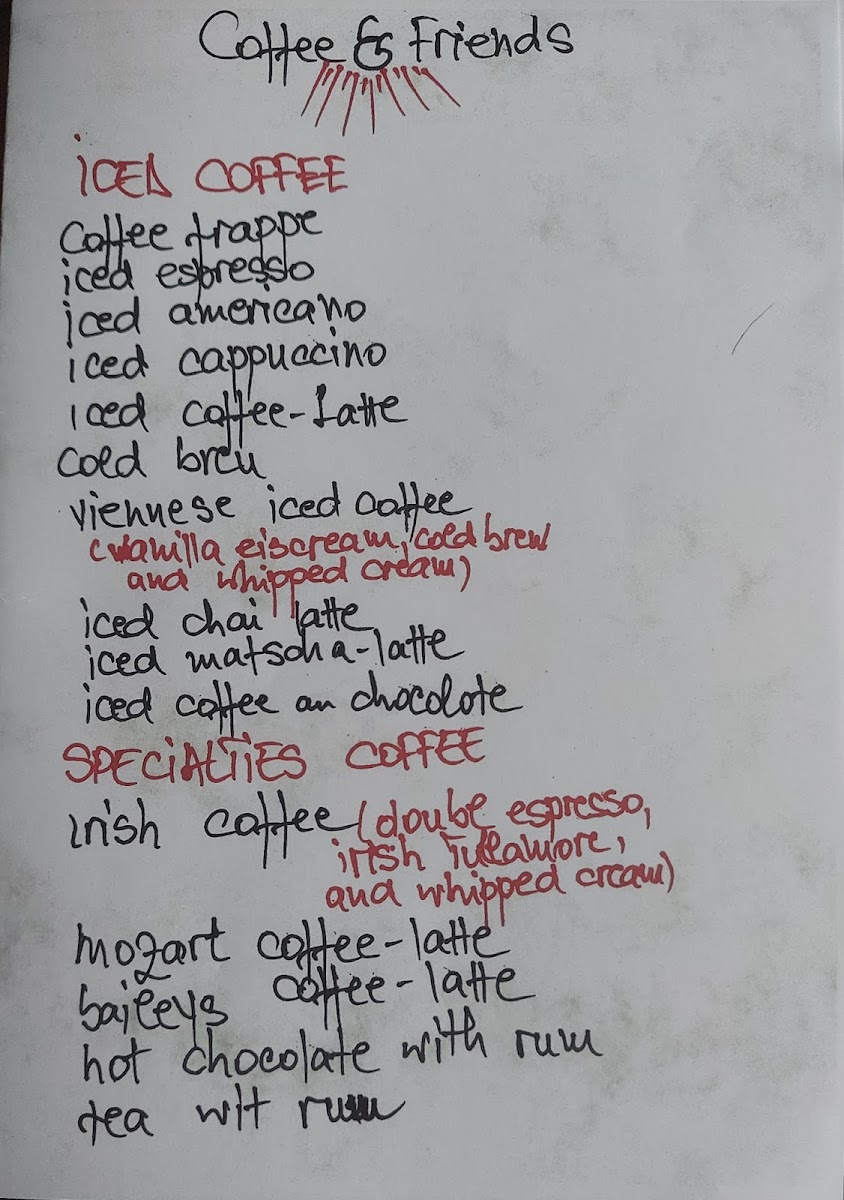 Coffee & Friends
ICED COFFEE
Coffee frappe
iced espresso
iced americano
iced cappuccino
iced coffee-Latte
cold breu
viennese iced coffee
(wanilla eiscream, cold brew
and whipped cream)
iced chai latte
iced matscha-latte
iced coffee an chocolote
SPECIALTIES COFFEE
irish coffee (doube espresso,
irish Tullamore,
and whipped cream)
mozart coffee-latte
baileys coffee-latte
hot chocolate with rum
tea wit rum